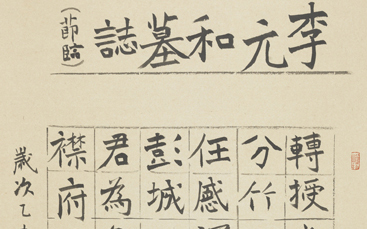 李元和墓誌
（節臨）
轉授
分竹
任感
彭城
君為
襟府
歲次乙